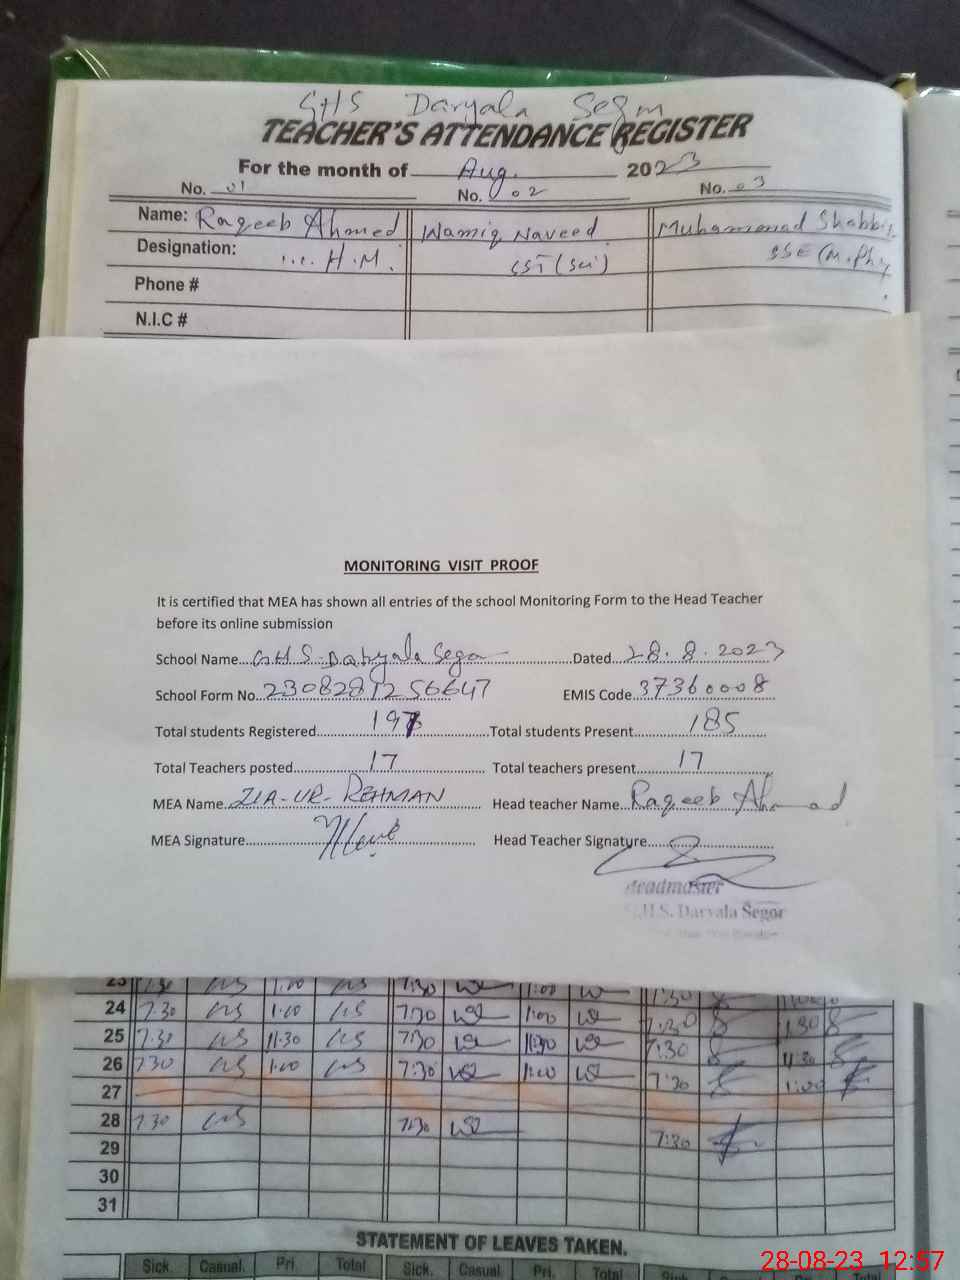 GHS Daryala Segon
TEACHER'S ATTENDANCE REGISTER
For the month of Aug. 2023
No. 01 No. 02 No. 03
Name: Raqeeb Ahmed Wamiq Naveed Muhammad Shabbir
Designation: H.M. SST (Sci) SSE (M.Phy
Phone #
N.I.C #
MONITORING VISIT PROOF
It is certified that MEA has shown all entries of the school Monitoring Form to the Head Teacher
before its online submission
School Name G.H.S. Daryala Segon Dated 28.8.2023
School Form No. EMIS Code 37360008
Total students Registered Total students Present 185
Total Teachers posted 17 Total teachers present 17
MEA Name ZIA-UR-REHMAN Head teacher Name Raqeeb Ahmad
MEA Signature Head Teacher Signature
Headmaster
G.H.S. Daryala Segor
23 7.30 1.00 7:30 1:00 7:30
24 7.30 1.00 7:30 1:00 7:30 1:30
25 7.30 11.30 7:30 11:30 7:30 11:30
26 7.30 1.00 7:30 1:00 7:30 1:00
27
28 7.30 7:30 7:30
29
30
31
STATEMENT OF LEAVES TAKEN.
Sick. Casual. Pri. Total Sick. Casual Pri. Total Sick. Casual Pri. Total
28-08-23 12:57